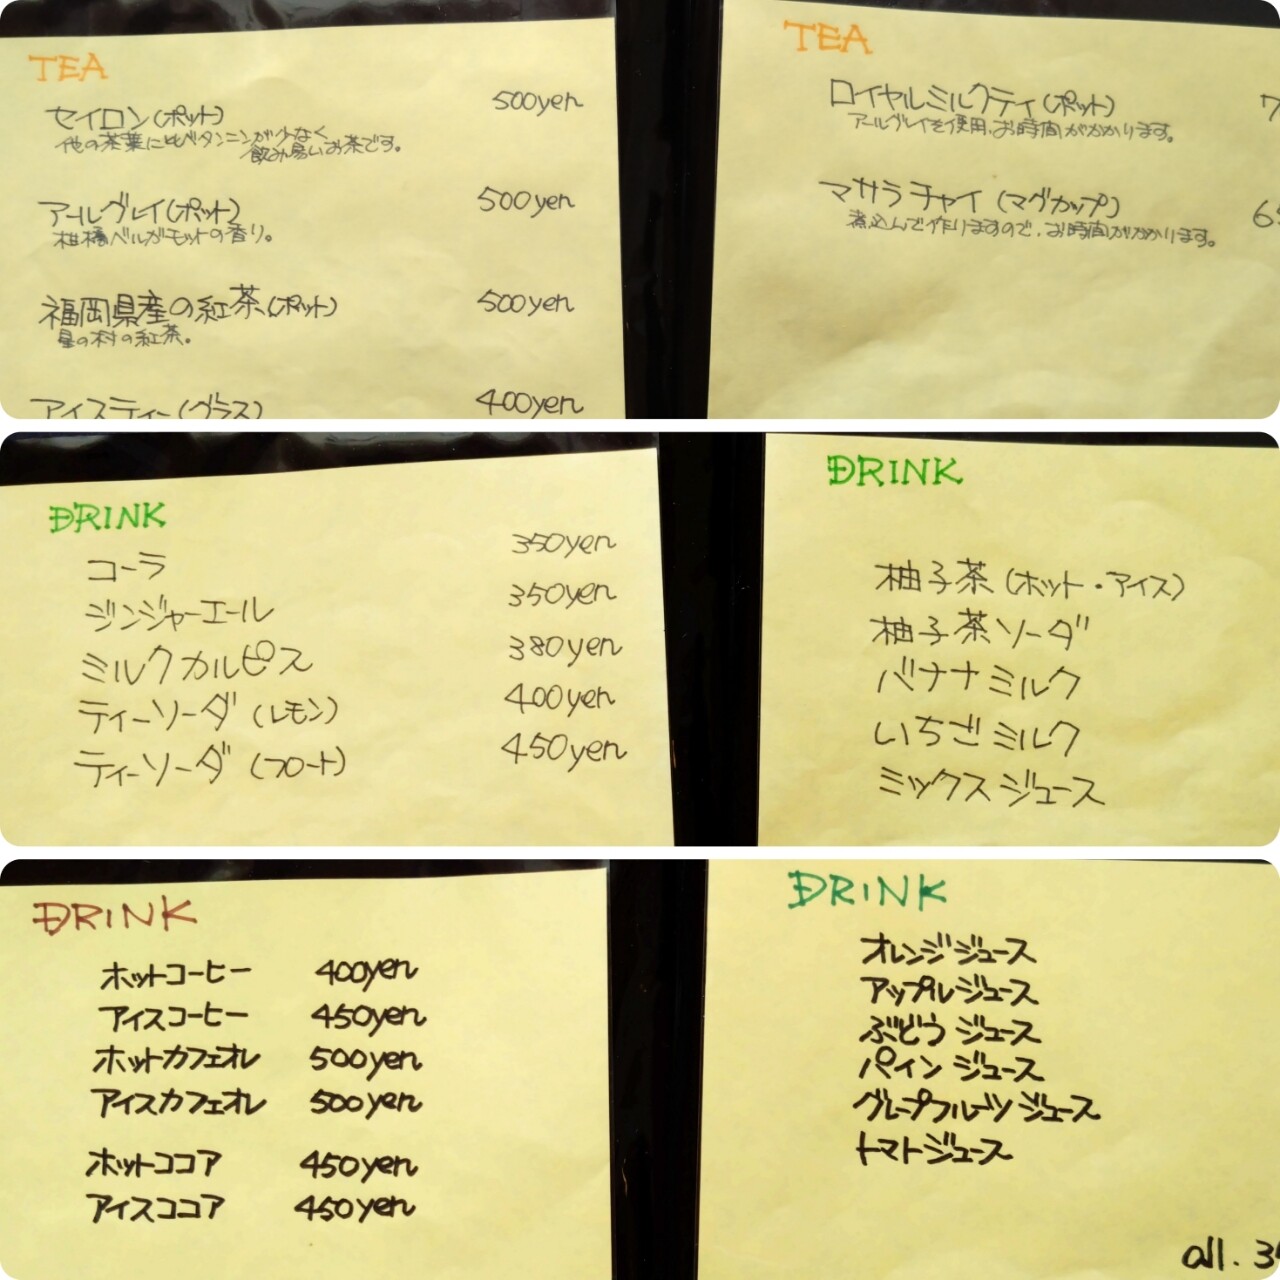 TEA
セイロン(ポット) 500yen
他の茶葉に比べタンニンが少なく、
飲み易いお茶です。
アールグレイ(ポット) 500yen
柑橘ベルガモットの香り。
福岡県産の紅茶(ポット) 500yen
星の村の紅茶。
アイスティー(グラス) 400yen
TEA
ロイヤルミルクティ(ポット) 7
アールグレイを使用。お時間がかかります。
マサラチャイ(マグカップ) 65
煮込んで作りますので、お時間がかかります。
DRINK
コーラ 350yen
ジンジャーエール 350yen
ミルクカルピス 380yen
ティーソーダ(レモン) 400yen
ティーソーダ(フロート) 450yen
DRINK
柚子茶(ホット・アイス)
柚子茶ソーダ
バナナミルク
いちごミルク
ミックスジュース
DRINK
ホットコーヒー 400yen
アイスコーヒー 450yen
ホットカフェオレ 500yen
アイスカフェオレ 500yen
ホットココア 450yen
アイスココア 450yen
DRINK
オレンジジュース
アップルジュース
ぶどうジュース
パインジュース
グレープフルーツジュース
トマトジュース
all. 3